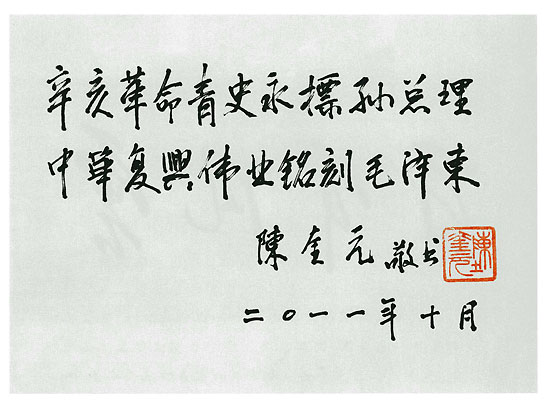 辛亥革命青史永標孙总理
中華复興伟业銘刻毛泽東
陳奎元敬书
二〇一一年十月